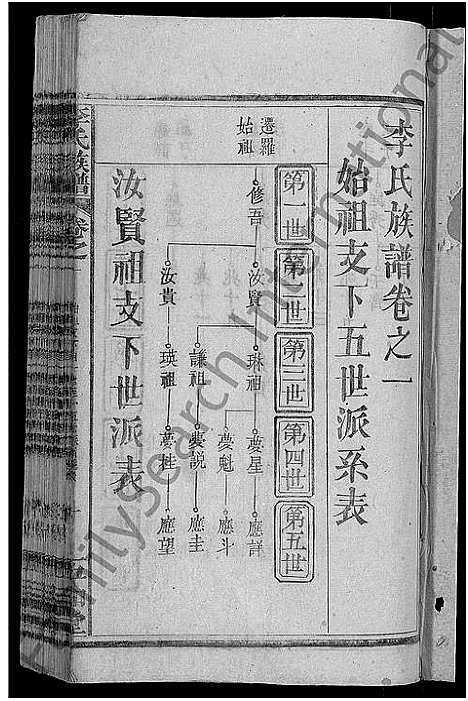 李氏族譜卷之一
始祖支下五世派系表
第一世
第二世
第三世
第四世
第五世
遷羅
始祖
修吾
汝賢
琳祖
夢星
應詳
夢魁
應斗
謙祖
夢説
應圭
汝貴
瑛祖
夢桂
應望
汝賢祖支下世派表
李氏族譜
卷之一
FamilySearch International